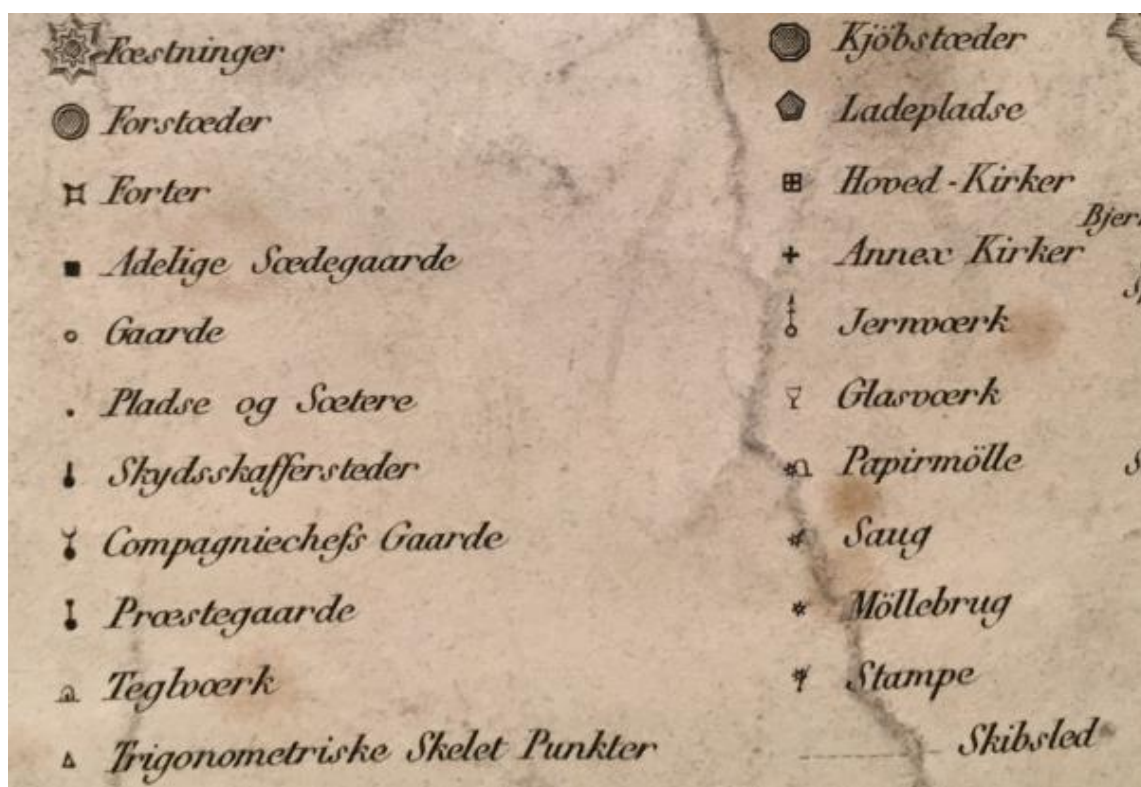 Fæstninger
Forstæder
Forter
Adelige Sædegaarde
Gaarde
Pladse og Sætere
Skydsskaffersteder
Compagniechefs Gaarde
Præstegaarde
Teglværk
Trigonometriske Skelet Punkter
Kjöbstæder
Ladepladse
Hoved-Kirker
Annex Kirker
Jernværk
Glasværk
Papirmölle
Saug
Möllebrug
Stampe
Skibsled